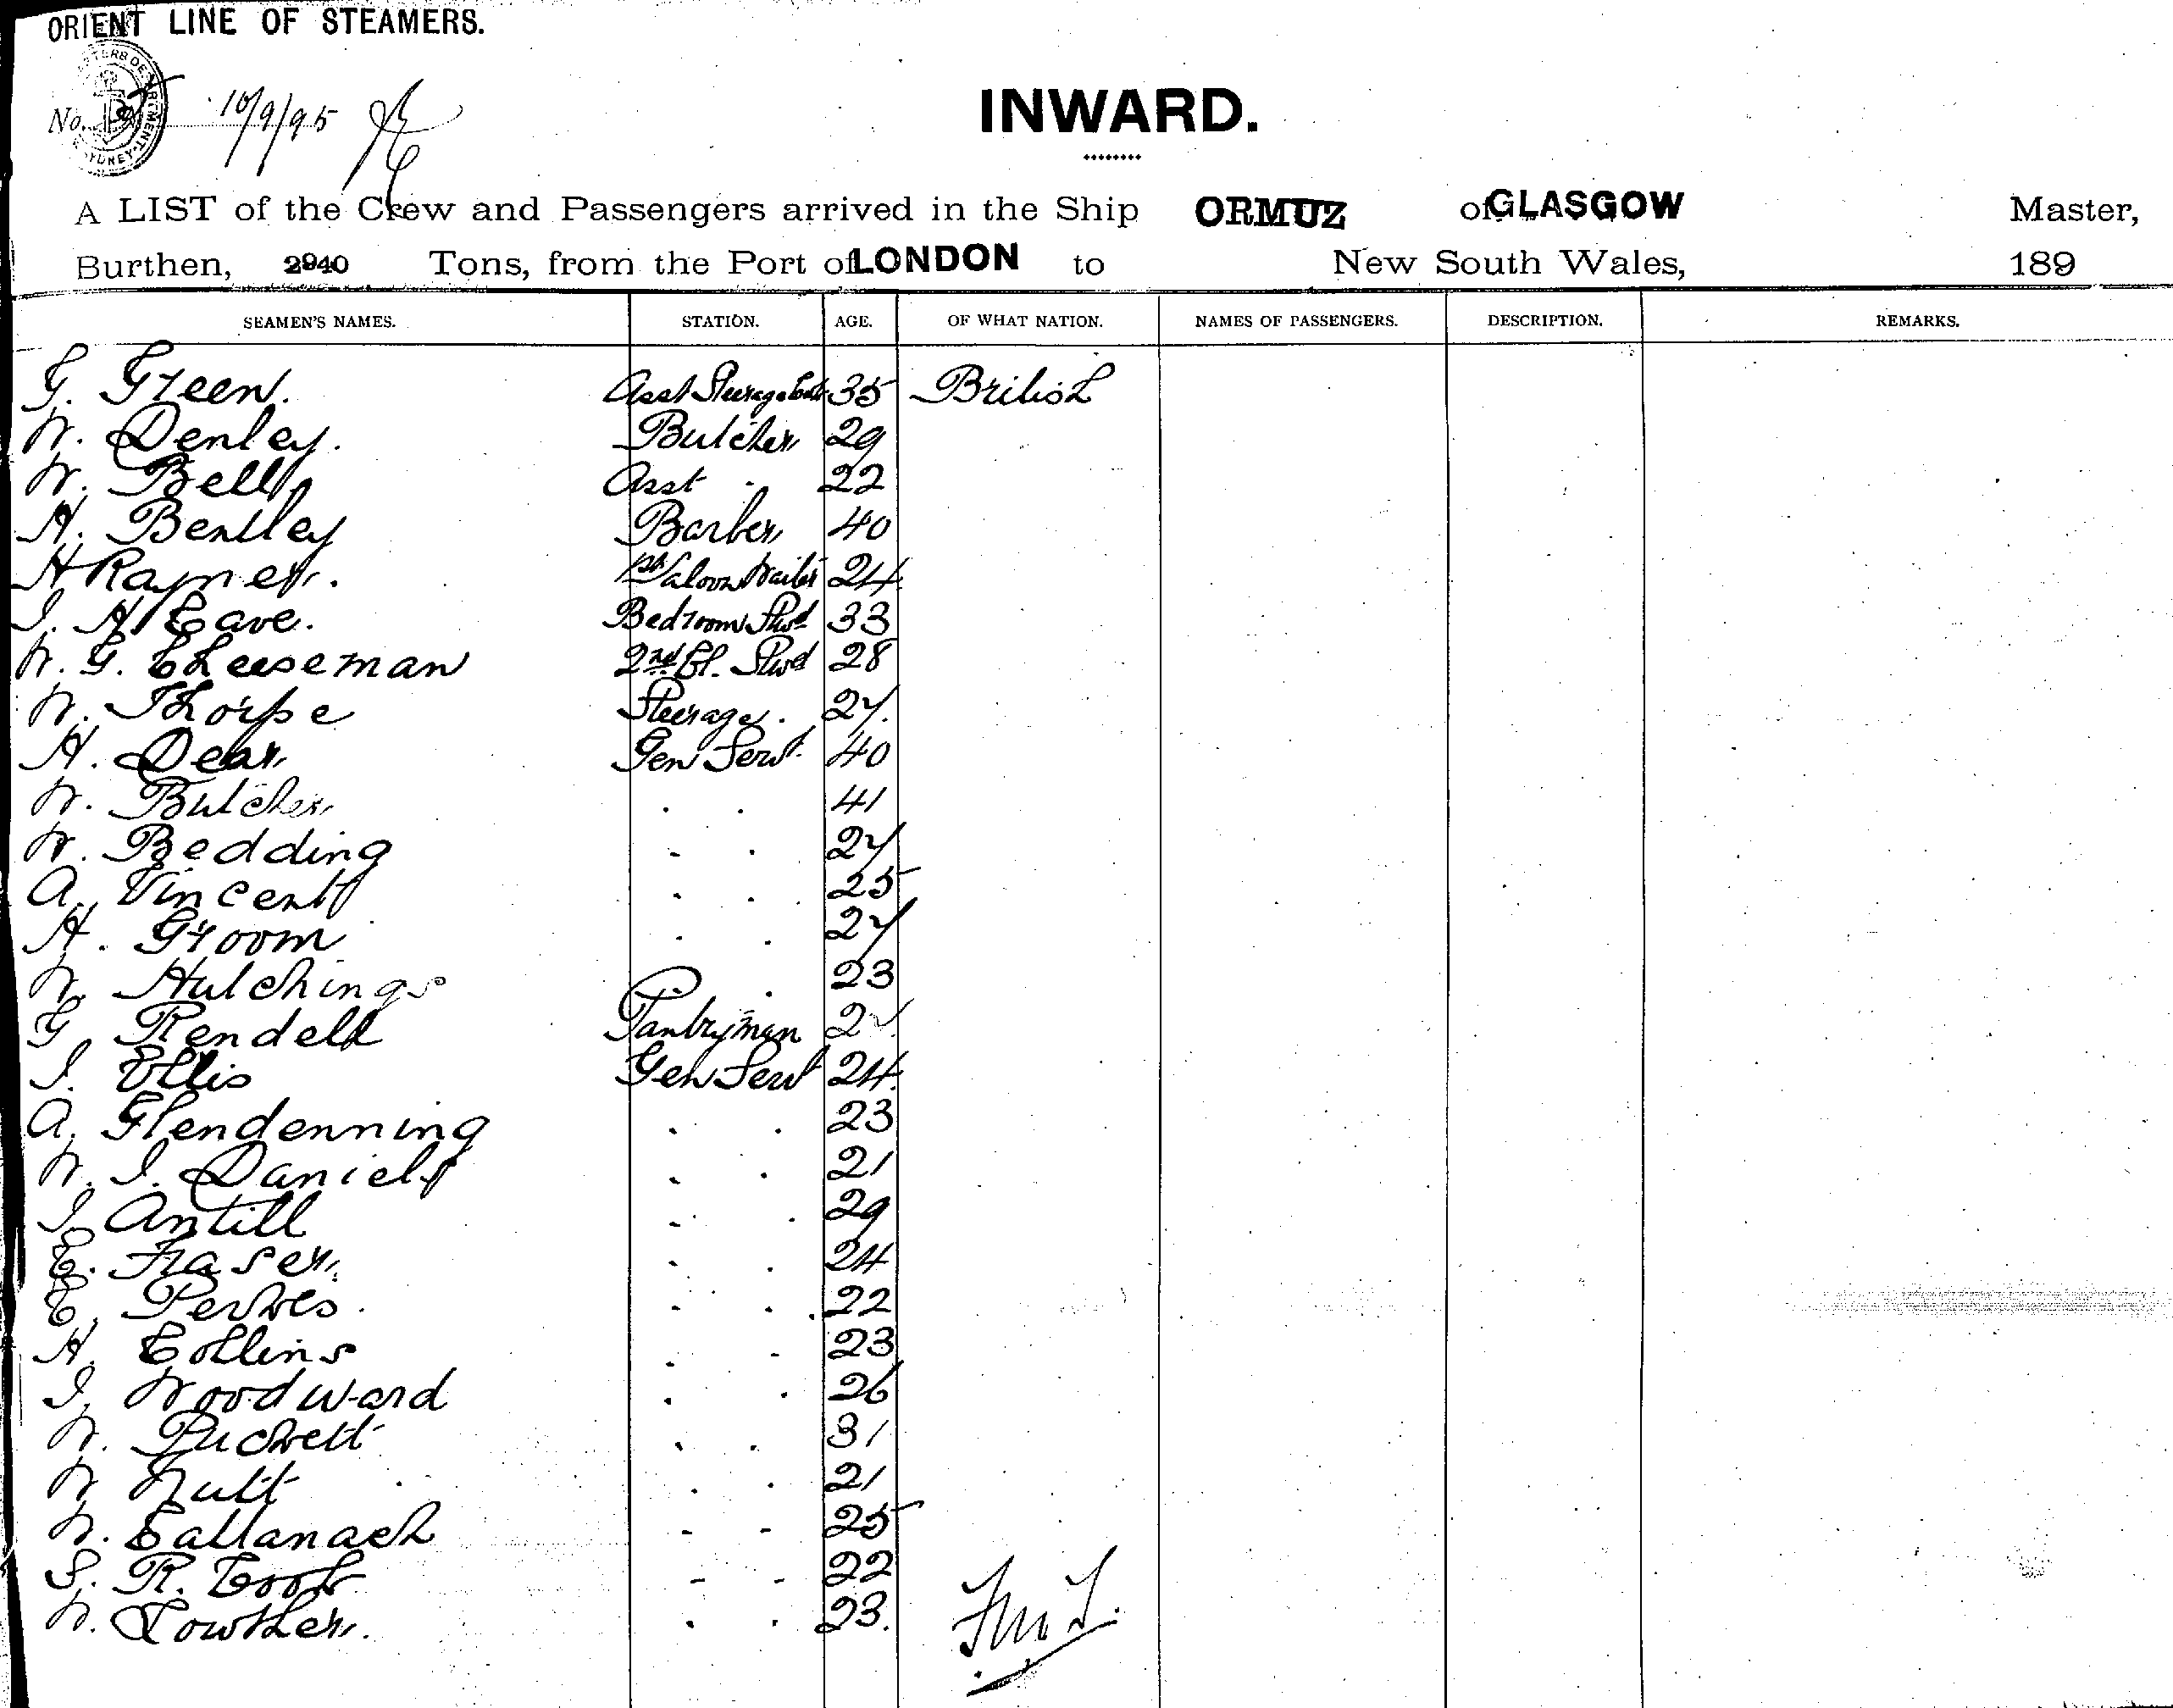 ORIENT LINE OF STEAMERS.
No. 10/9/95
INWARD.
A LIST of the Crew and Passengers arrived in the Ship ORMUZ of GLASGOW Master,
Burthen, 2940 Tons, from the Port of LONDON to New South Wales, 189
SEAMEN'S NAMES. STATION. AGE. OF WHAT NATION. NAMES OF PASSENGERS. DESCRIPTION. REMARKS.
G. Green. Asst Steerage 35 British
W. Denley. Butcher 29
W. Bell Asst " 22
H. Bentley Barber 40
H Rayner. 1st Saloon Waiter 24
J. H Cave. Bedroom Stwd 33
W. G. Cheeseman 2nd Cl. Stwd 28
W. Thorpe Steerage. 27.
H. Dear Gen Servt. 40
W. Butcher . . 41
W. Bedding - . 27
A. Vincent . . 25
H. Groom . . 27
W. Hutchings . . 23
G. Rendell Pantryman 2
J. Ellis Gen Servt 24.
A. Glendenning . . 23
W. J. Daniels . . 21
J. Antill - . 29
C. Fraser . . 24
C. Perkes. - . 22
H. Collins . - 23
J. Woodward . . 26
W. Puckett . . 31
W Nutt . . 21
W. Callanach - - 25
S. R. Cook - - 22
W. Lowther. . . 23.